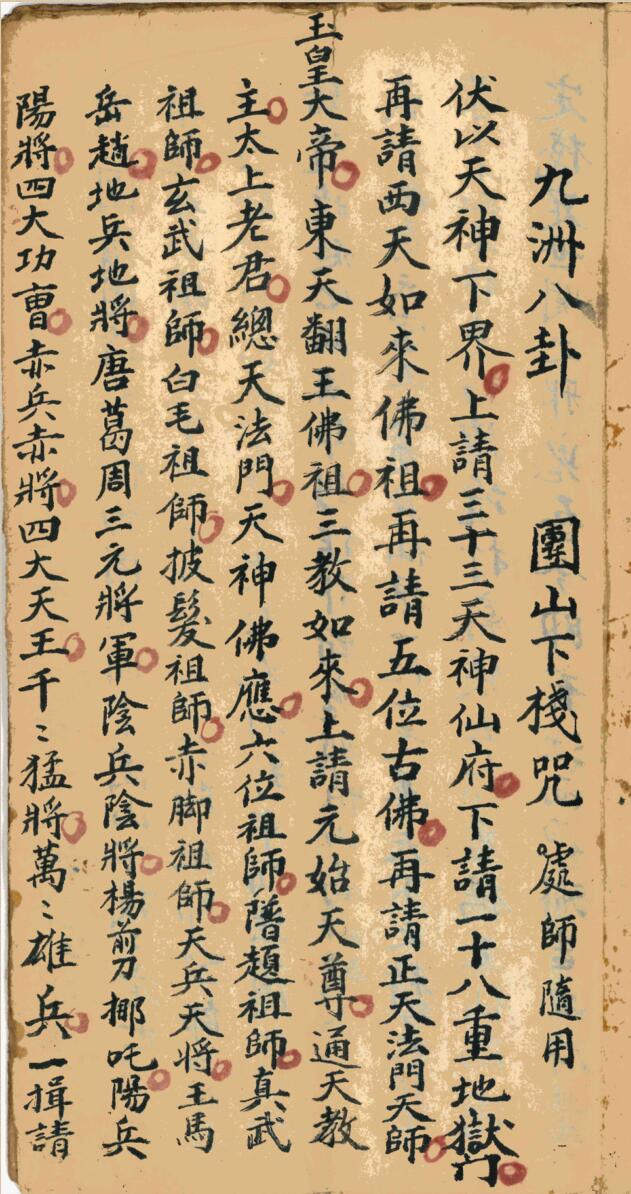 九洲八卦 團山下棧咒 處師隨用
伏以天神下界上請三十三天神仙府下請一十八重地獄門
再請西天如來佛祖再請五位古佛再請正天法門天師
玉皇大帝東天翻王佛祖三教如來上請元始天尊通天教
主太上老君總天法門天神佛應六位祖師普趙祖師真武
祖師玄武祖師白毛祖師披髮祖師赤脚祖師天兵天將王馬
岳趙地兵地將唐葛周三元將軍陰兵陰將楊剪挪吒陽兵
陽將四大功曹赤兵赤將四大天王千〻猛將萬〻雄兵一揖請